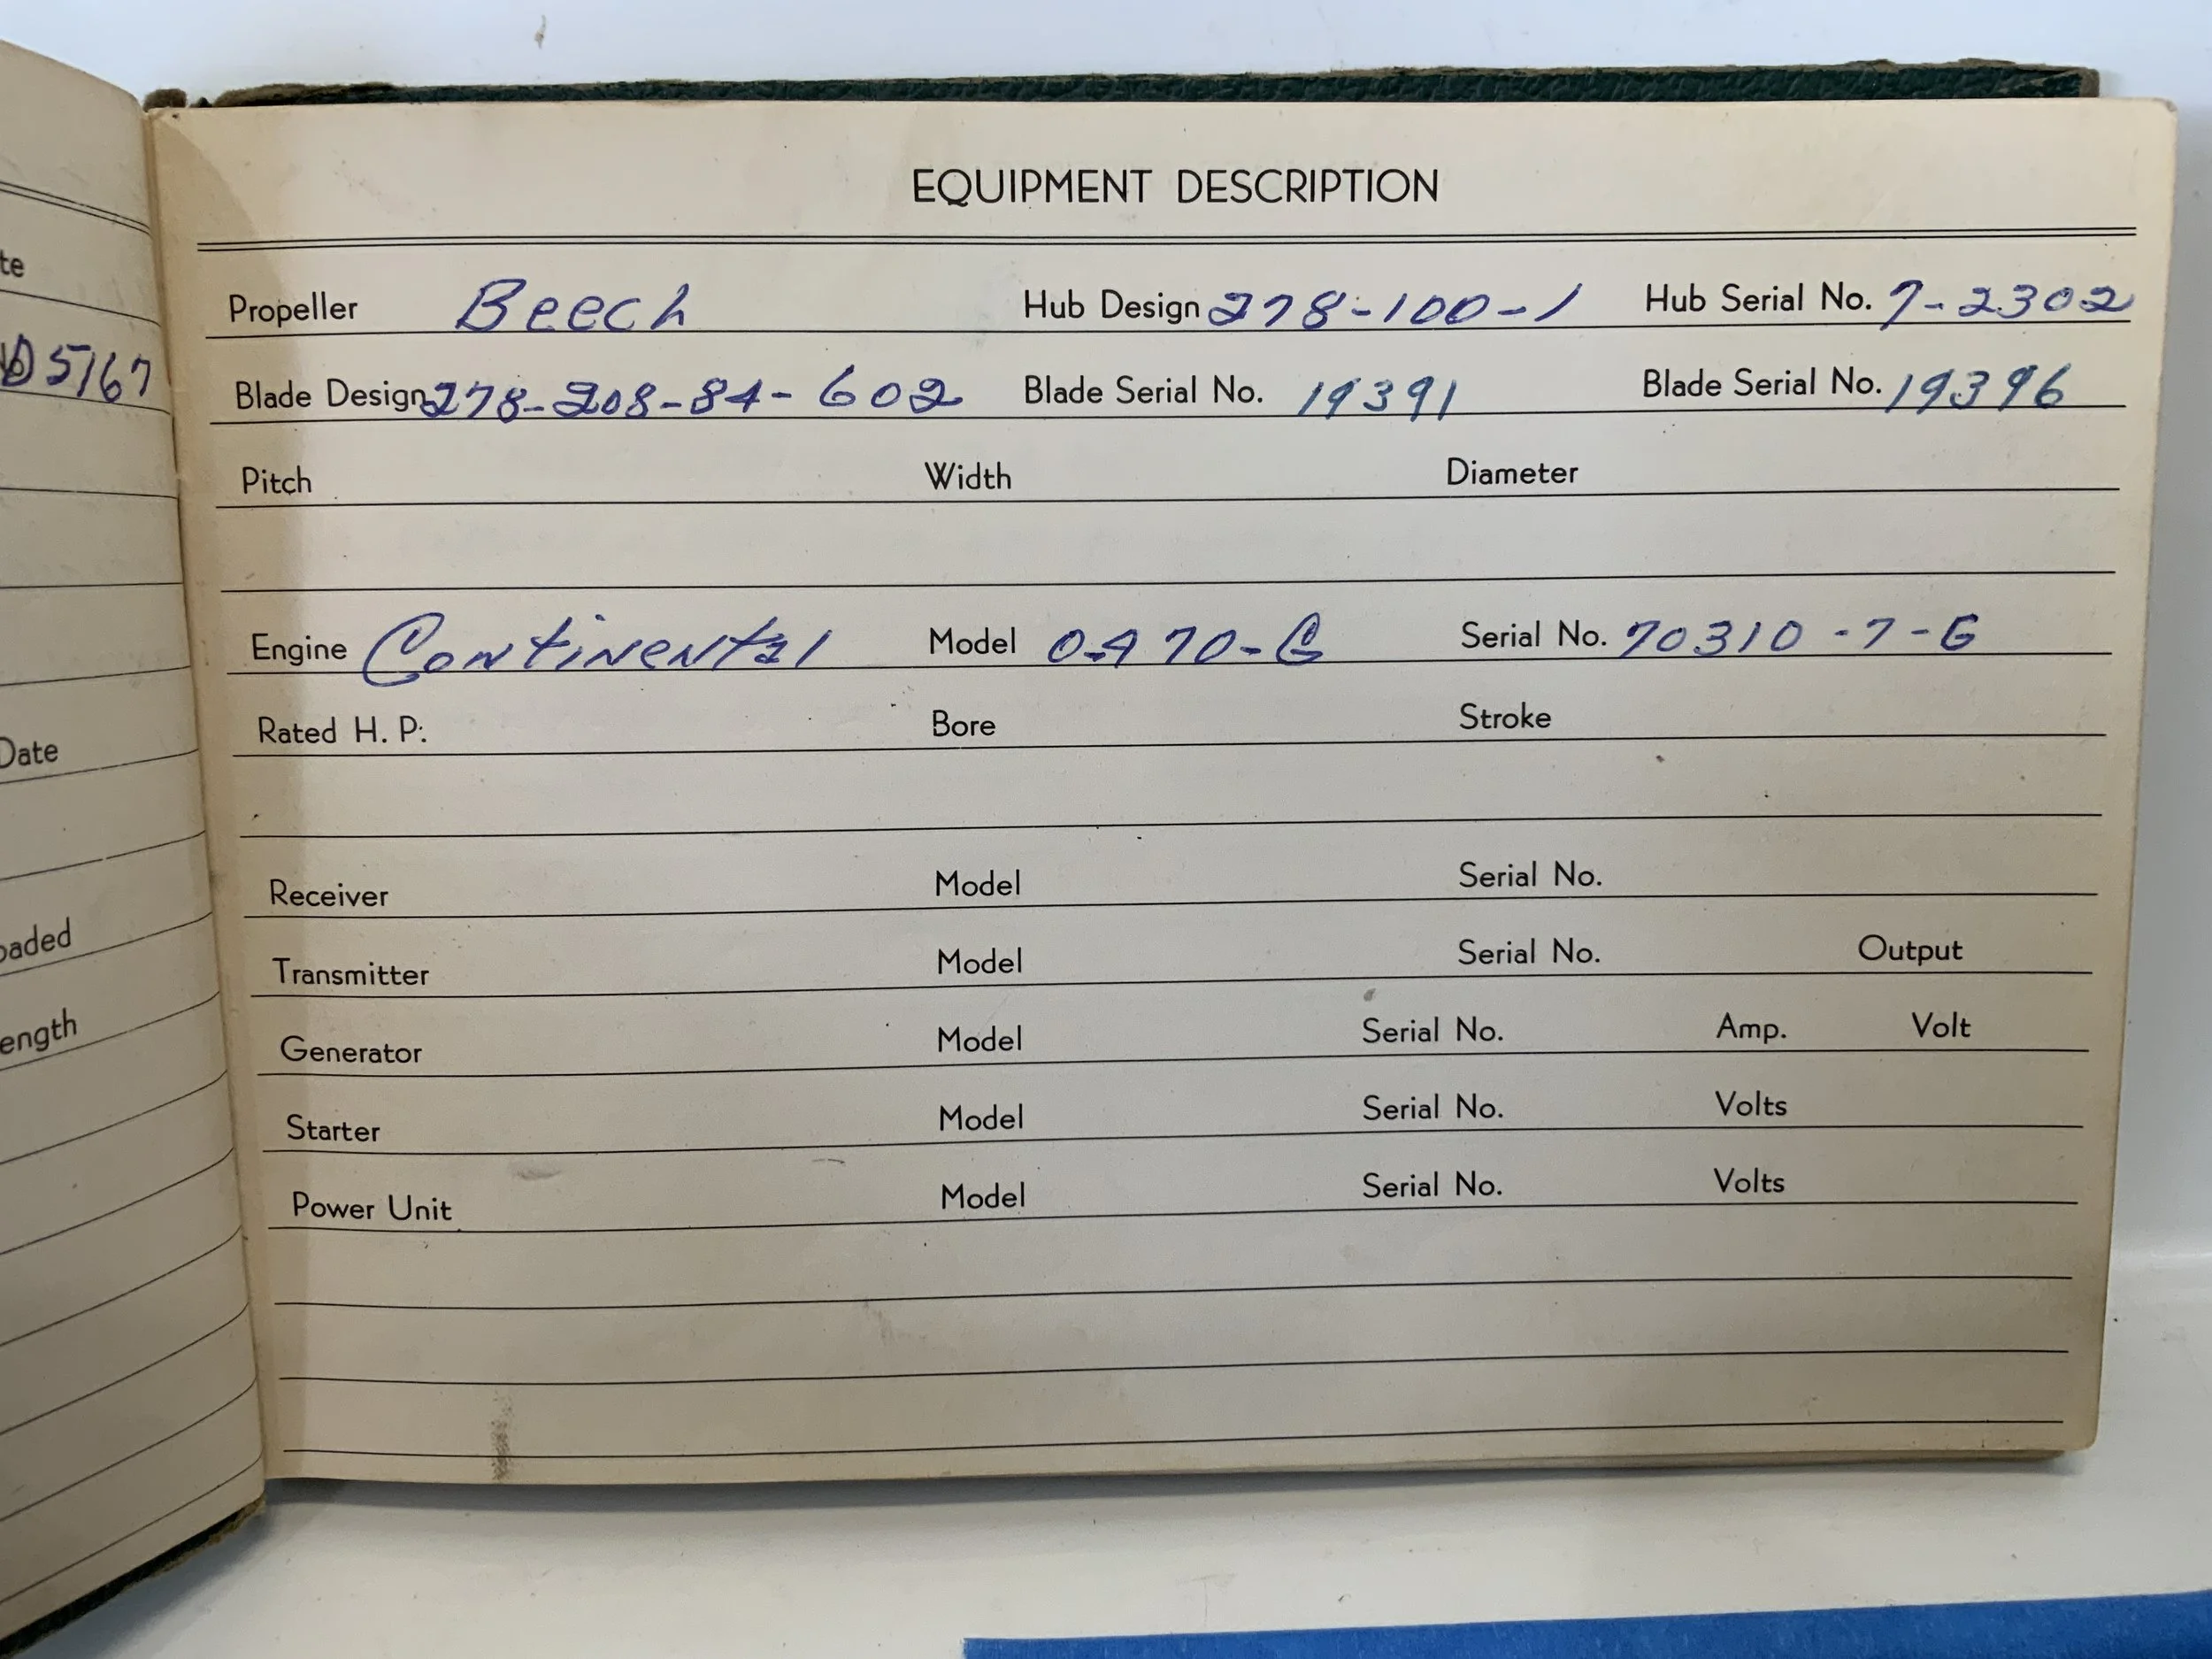 te
D5167
Date
oaded
ength
EQUIPMENT DESCRIPTION
Propeller Beech Hub Design 278-100-1 Hub Serial No. 7-2302
Blade Design 278-208-84-602 Blade Serial No. 19391 Blade Serial No. 19396
Pitch Width Diameter
Engine Continental Model O-470-G Serial No. 70310-7-G
Rated H. P. Bore Stroke
Receiver Model Serial No.
Transmitter Model Serial No. Output
Generator Model Serial No. Amp. Volt
Starter Model Serial No. Volts
Power Unit Model Serial No. Volts